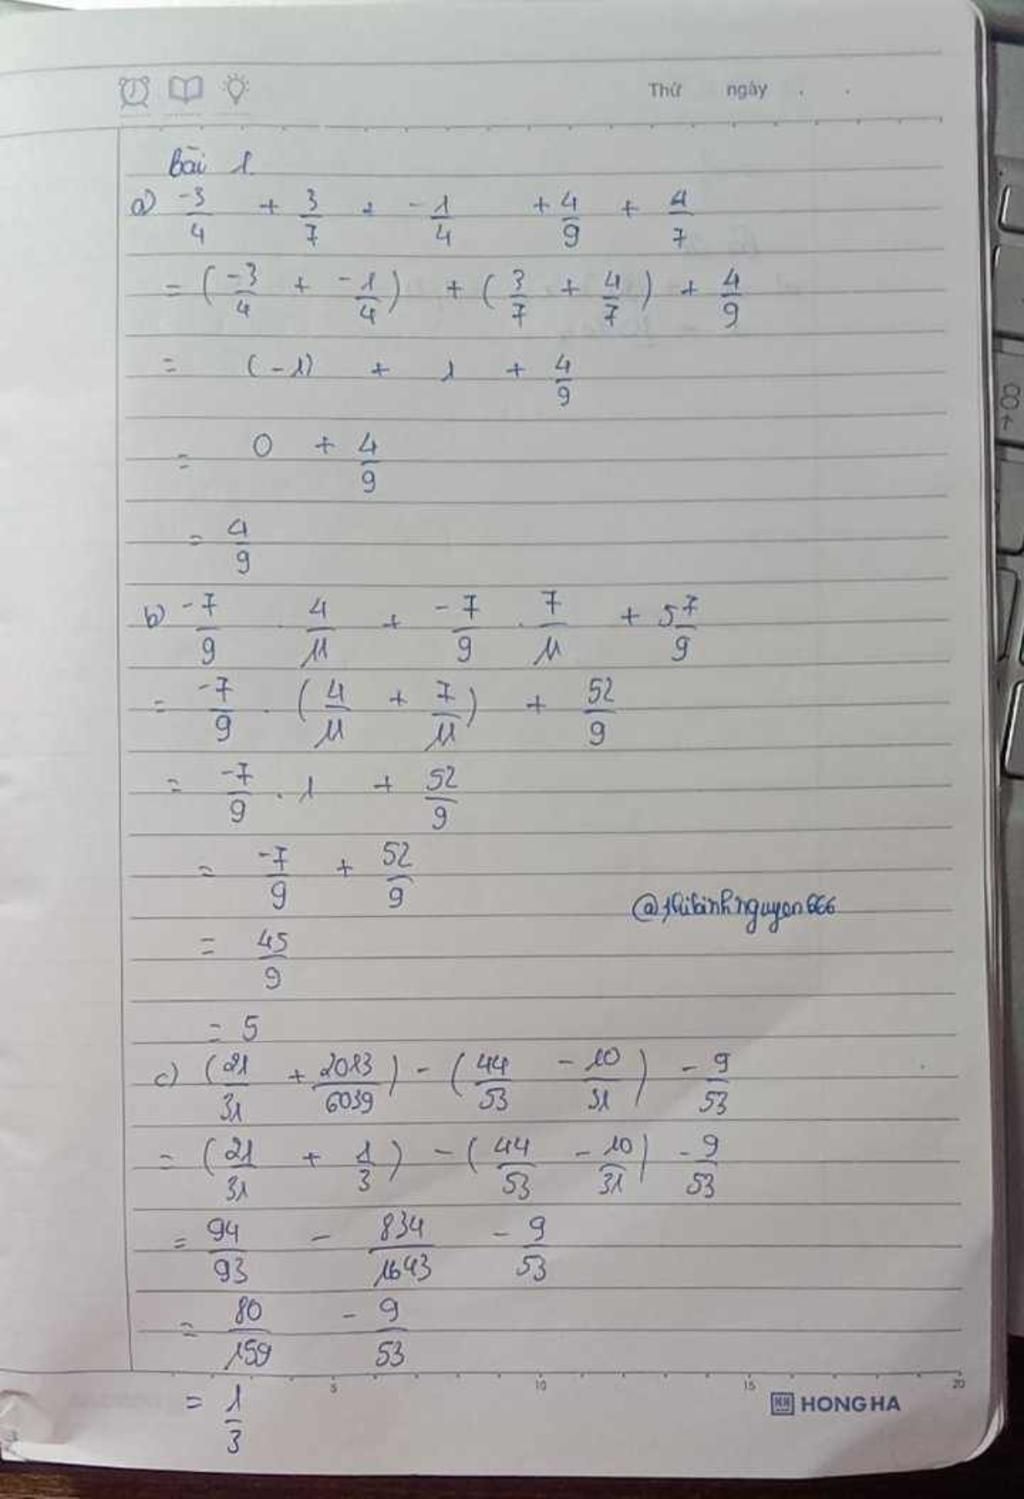 Thứ ngày . .
Bài 1
a) -3/4 + 3/7 + -1/4 + 4/9 + 4/7
= (-3/4 + -1/4) + (3/7 + 4/7) + 4/9
= (-1) + 1 + 4/9
= 0 + 4/9
= 4/9
b) -7/9 . 4/11 + -7/9 . 7/11 + 5 7/9
= -7/9 . (4/11 + 7/11) + 52/9
= -7/9 . 1 + 52/9
= -7/9 + 52/9
= 45/9
= 5
@thibinhnguyen666
c) (21/31 + 2013/6039) - (44/53 - 10/31) - 9/53
= (21/31 + 1/3) - (44/53 - 10/31) - 9/53
= 94/93 - 834/1643 - 9/53
= 80/159 - 9/53
= 1/3
5 10 15 20
HONG HA